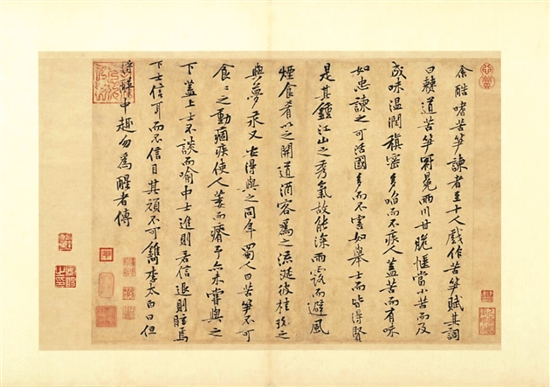 余酷嗜苦笋諫者至十人戲作苦笋賦其詞
曰僰道苦笋冠冕兩川甘脆愜當小苦而及
成味温潤縝密多啗而不疾人蓋苦而有味
如忠諫之可活國多而不害如舉士而皆得賢
是其鍾江山之秀氣故能深雨露而避風
煙食肴以之開道酒客為之流涎彼桂玫之
與夢永又安得與之同年蜀人曰苦笋不可
食〻之動痼疾使人萎而瘠予亦未嘗與之
下蓋上士不談而喻中士進則若信退則眩焉
下士信耳而不信目其頑不可鐫李太白曰但
得醉中趣勿為醒者傳